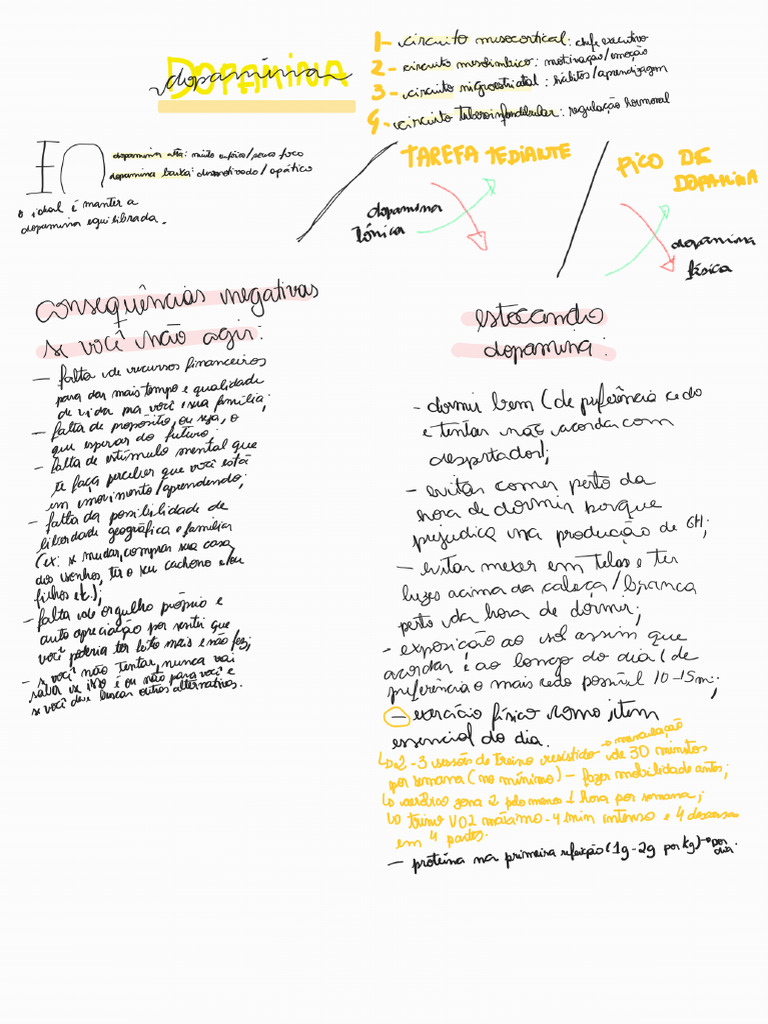 DOPAMINA
dopamina
1- circuito mesocortical: chefe executivo
2- circuito mesolímbico: motivação/emoção
3- circuito nigroestriatal: hábitos/aprendizagem
4- circuito tuberoinfundibular: regulação hormonal
dopamina alta: muito eufórico/pouco foco
dopamina baixa: desmotivado/apático
o ideal é manter a
dopamina equilibrada.
TAREFA TEDIANTE
dopamina
tônica
PICO DE
DOPAMINA
dopamina
fásica
consequências negativas
se você não agir:
- falta de recursos financeiros
para dar mais tempo e qualidade
de vida pra você e sua família;
- falta de propósito, ou seja, o
que esperar do futuro;
- falta de estímulo mental que
te faça perceber que você está
em movimento/aprendendo;
- falta da possibilidade de
liberdade geográfica e família
(ex: se mudar, comprar sua casa
dos sonhos, ter o seu cachorro e/ou
filhos etc.);
- falta de orgulho próprio e
auto apreciação por sentir que
você poderia ter feito mais e não fez;
- se você não tentar, nunca vai
saber se isso é ou não para você e
se você deve buscar outras alternativas.
estocando
dopamina:
- dormir bem (de preferência cedo
e tentar não acordar com
despertador);
- evitar comer perto da
hora de dormir porque
prejudica na produção de GH;
- evitar mexer em telas e ter
luzes acima da cabeça/branca
perto da hora de dormir;
- exposição ao sol assim que
acordar e ao longo do dia (de
preferência o mais cedo possível 10-15m;
- exercício físico como item
essencial do dia.
→ musculação
↳ 2-3 sessões de treino resistido de 30 minutos
por semana (no mínimo) - fazer mobilidade antes;
↳ cardio zona 2 pelo menos 1 hora por semana;
↳ treino VO2 máximo - 4 min intenso e 4 descanso
em 4 partes.
- proteína na primeira refeição (1g-2g por kg) → por
dia.